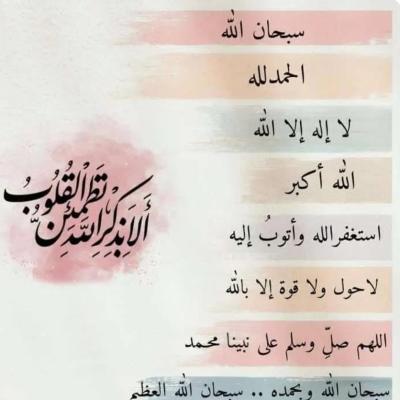 سبحان الله
الحمدلله
لا إله إلا الله
الله أكبر
استغفرالله وأتوبُ إليه
لاحول ولا قوة إلا بالله
اللهم صلِّ وسلم على نبينا محمد
سبحان الله وبحمده .. سبحان الله العظيم
أَلَا بِذِكْرِ اللَّهِ تَطْمَئِنُّ الْقُلُوبُ